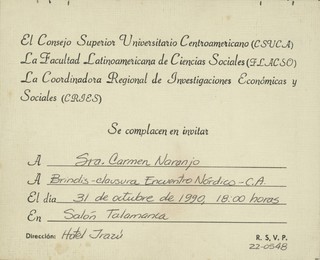 El Consejo Superior Universitario Centroamericano (CSUCA)
La Facultad Latinoamericana de Ciencias Sociales (FLACSO)
La Coordinadora Regional de Investigaciones Económicas y
Sociales (CRIES)
Se complacen en invitar
A Sra. Carmen Naranjo
A Brindis-clausura Encuentro Nórdico-C.A.
El día 31 de octubre de 1990, 18:00 horas
En Salón Talamanca
Dirección: Hotel Irazú R. S. V. P.
22-0548